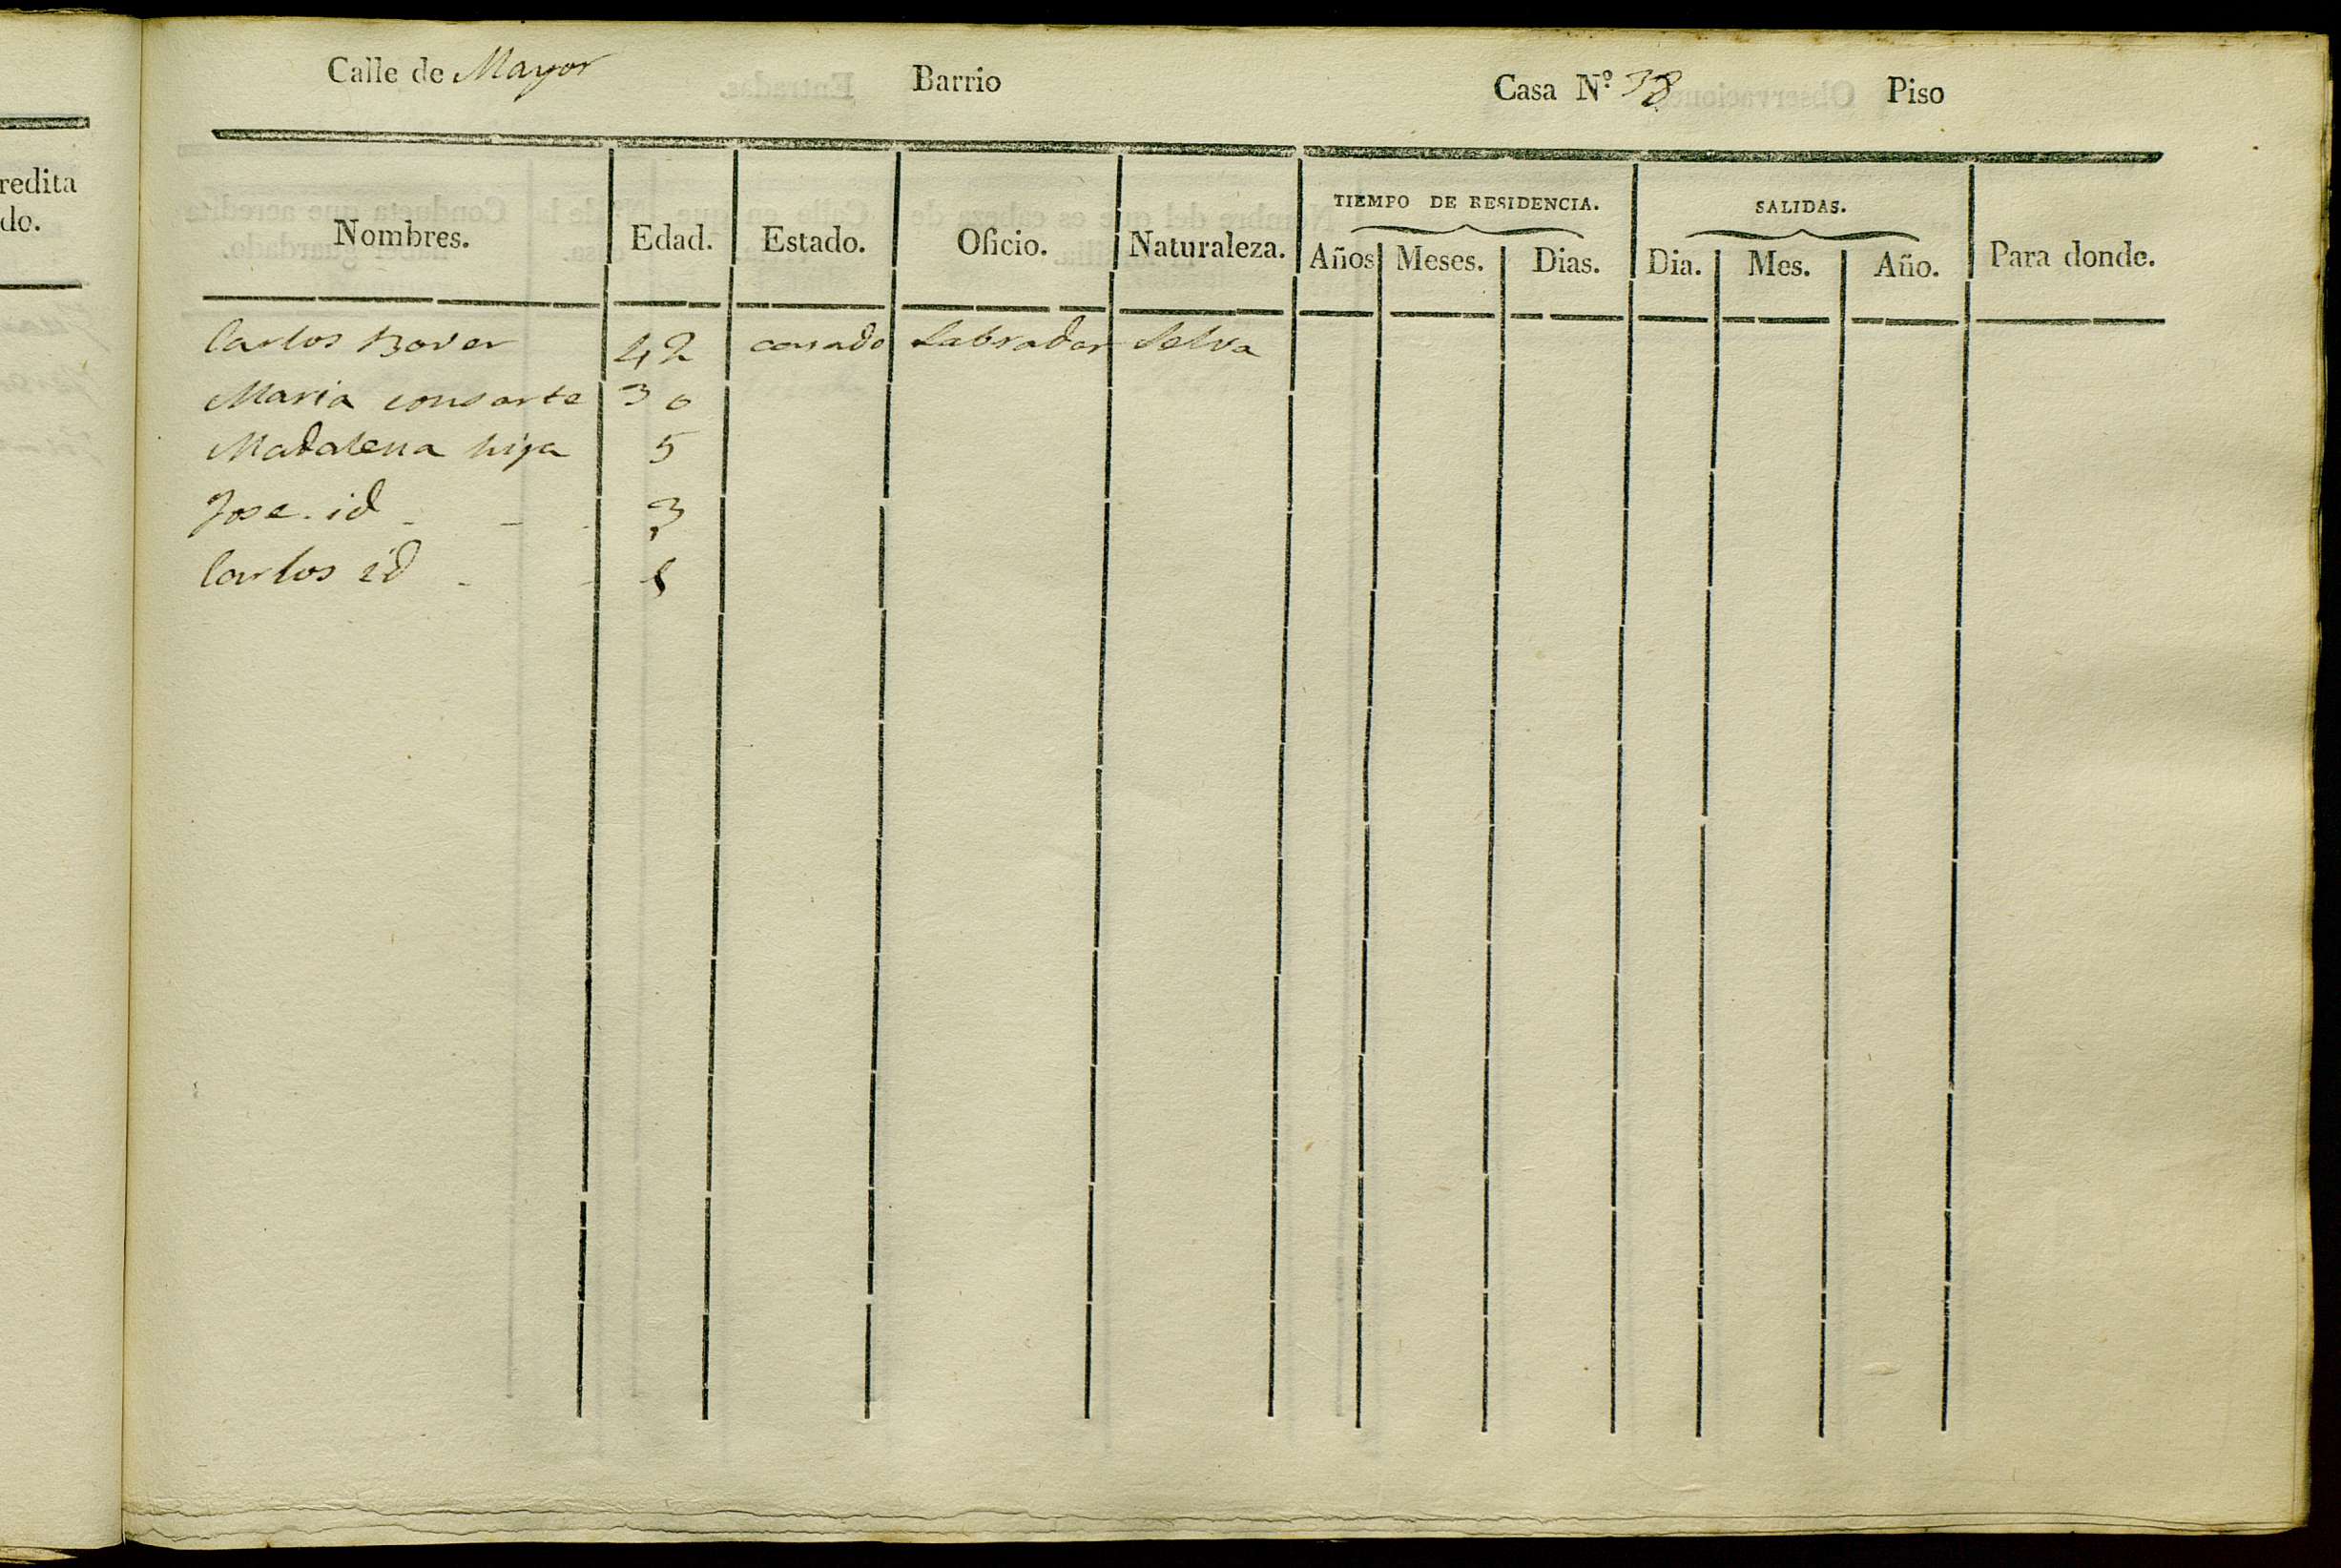 Calle de Mayor Barrio Casa N.º 38 Piso
redita
do.
Nombres. Edad. Estado. Oficio. Naturaleza. TIEMPO DE RESIDENCIA. SALIDAS. Para donde.
Años Meses. Dias. Dia. Mes. Año.
Carlos Bover 42 casado Labrador Selva
Maria consorte 30
Madalena hija 5
Jose. id - - - 3
Carlos id - -